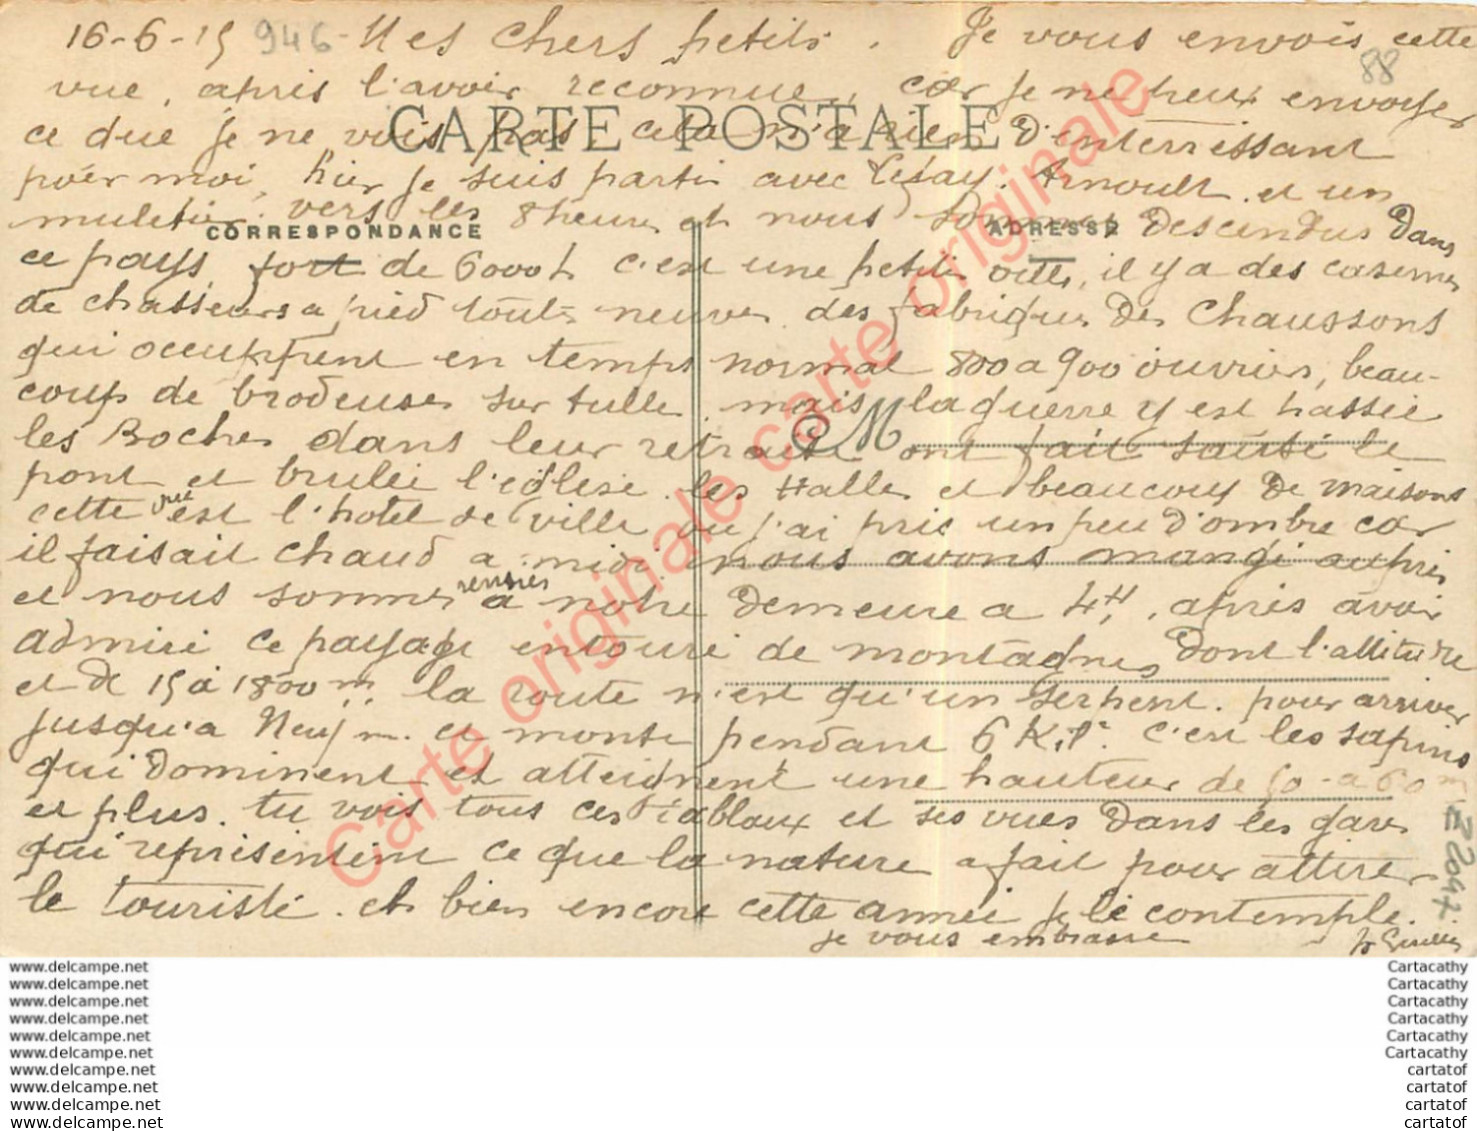 16-6-15 946 - Mes Chers petits. Je vous envois cette
88
vue, après l'avoir reconnue, car je ne peux envoyer
CARTE POSTALE
ce que je ne vois pas, cela n'a rien d'interressant
pour moi, hier je suis parti avec Lesay. Arnoult et un
muletier. vers les 8 heures et nous sommes descendus dans
CORRESPONDANCE
ADRESSE
ce pays fort de 6000 h c'est une petite ville, il y a des casernes
de chasseurs a pied toute neuves des fabriques de Chaussons
qui occuppent en temps normal 800 a 900 ouvriers, beau-
coup de brodeuses sur tulle. mais la guerre y est passée
les Boches dans leur retraite ont fait sauté le
CM
pont et brulée l'église. les Halles et beaucoup de maisons
cette vue est l'hotel de ville ou j'ai pris un peu d'ombre car
il faisait chaud a midi nous avons mangé auprès
et nous sommes rentrés a notre demeure a 4H, après avoir
admiré ce paysage entouré de montagnes dont l'altitude
et de 15 à 1800 m. la route n'est qu'un serpent. pour arriver
jusqu'a Neuf m. et monte pendant 6 Kil. c'est les sapins
qui dominent et atteignent une hauteur de 50 a 60 m
et plus. tu vois tous ces tableaux et ses vues dans les gares
qui représentent ce que la nature a fait pour attirer
le touriste. et bien encore cette année je le contemple.
je vous embrasse
Z 2047
Carte originale carte originale
www.delcampe.net
www.delcampe.net
www.delcampe.net
www.delcampe.net
www.delcampe.net
www.delcampe.net
www.delcampe.net
www.delcampe.net
www.delcampe.net
www.delcampe.net
Cartacathy
Cartacathy
Cartacathy
Cartacathy
Cartacathy
Cartacathy
cartatof
cartatof
cartatof
cartatof